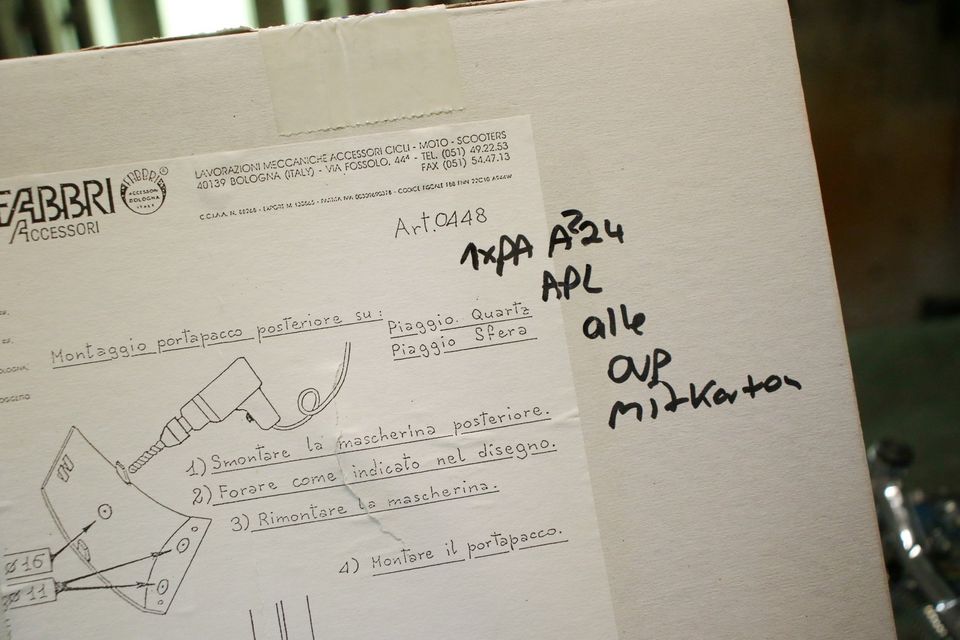 FABBRI
ACCESSORI
FABBRI
ACCESSORI
BOLOGNA
ITALY
LAVORAZIONI MECCANICHE ACCESSORI CICLI - MOTO - SCOOTERS
40139 BOLOGNA (ITALY) - VIA FOSSOLO, 44ª - TEL. (051) 49.22.53
FAX (051) 54.47.13
Art.0448
1xPA A²24
APL
alle
OVP
mit Karton
Montaggio portapacco posteriore su:
Piaggio. Quartz
Piaggio Sfera
1) Smontare la mascherina posteriore.
2) Forare come indicato nel disegno.
3) Rimontare la mascherina.
4) Montare il portapacco.
ø 16
ø 11